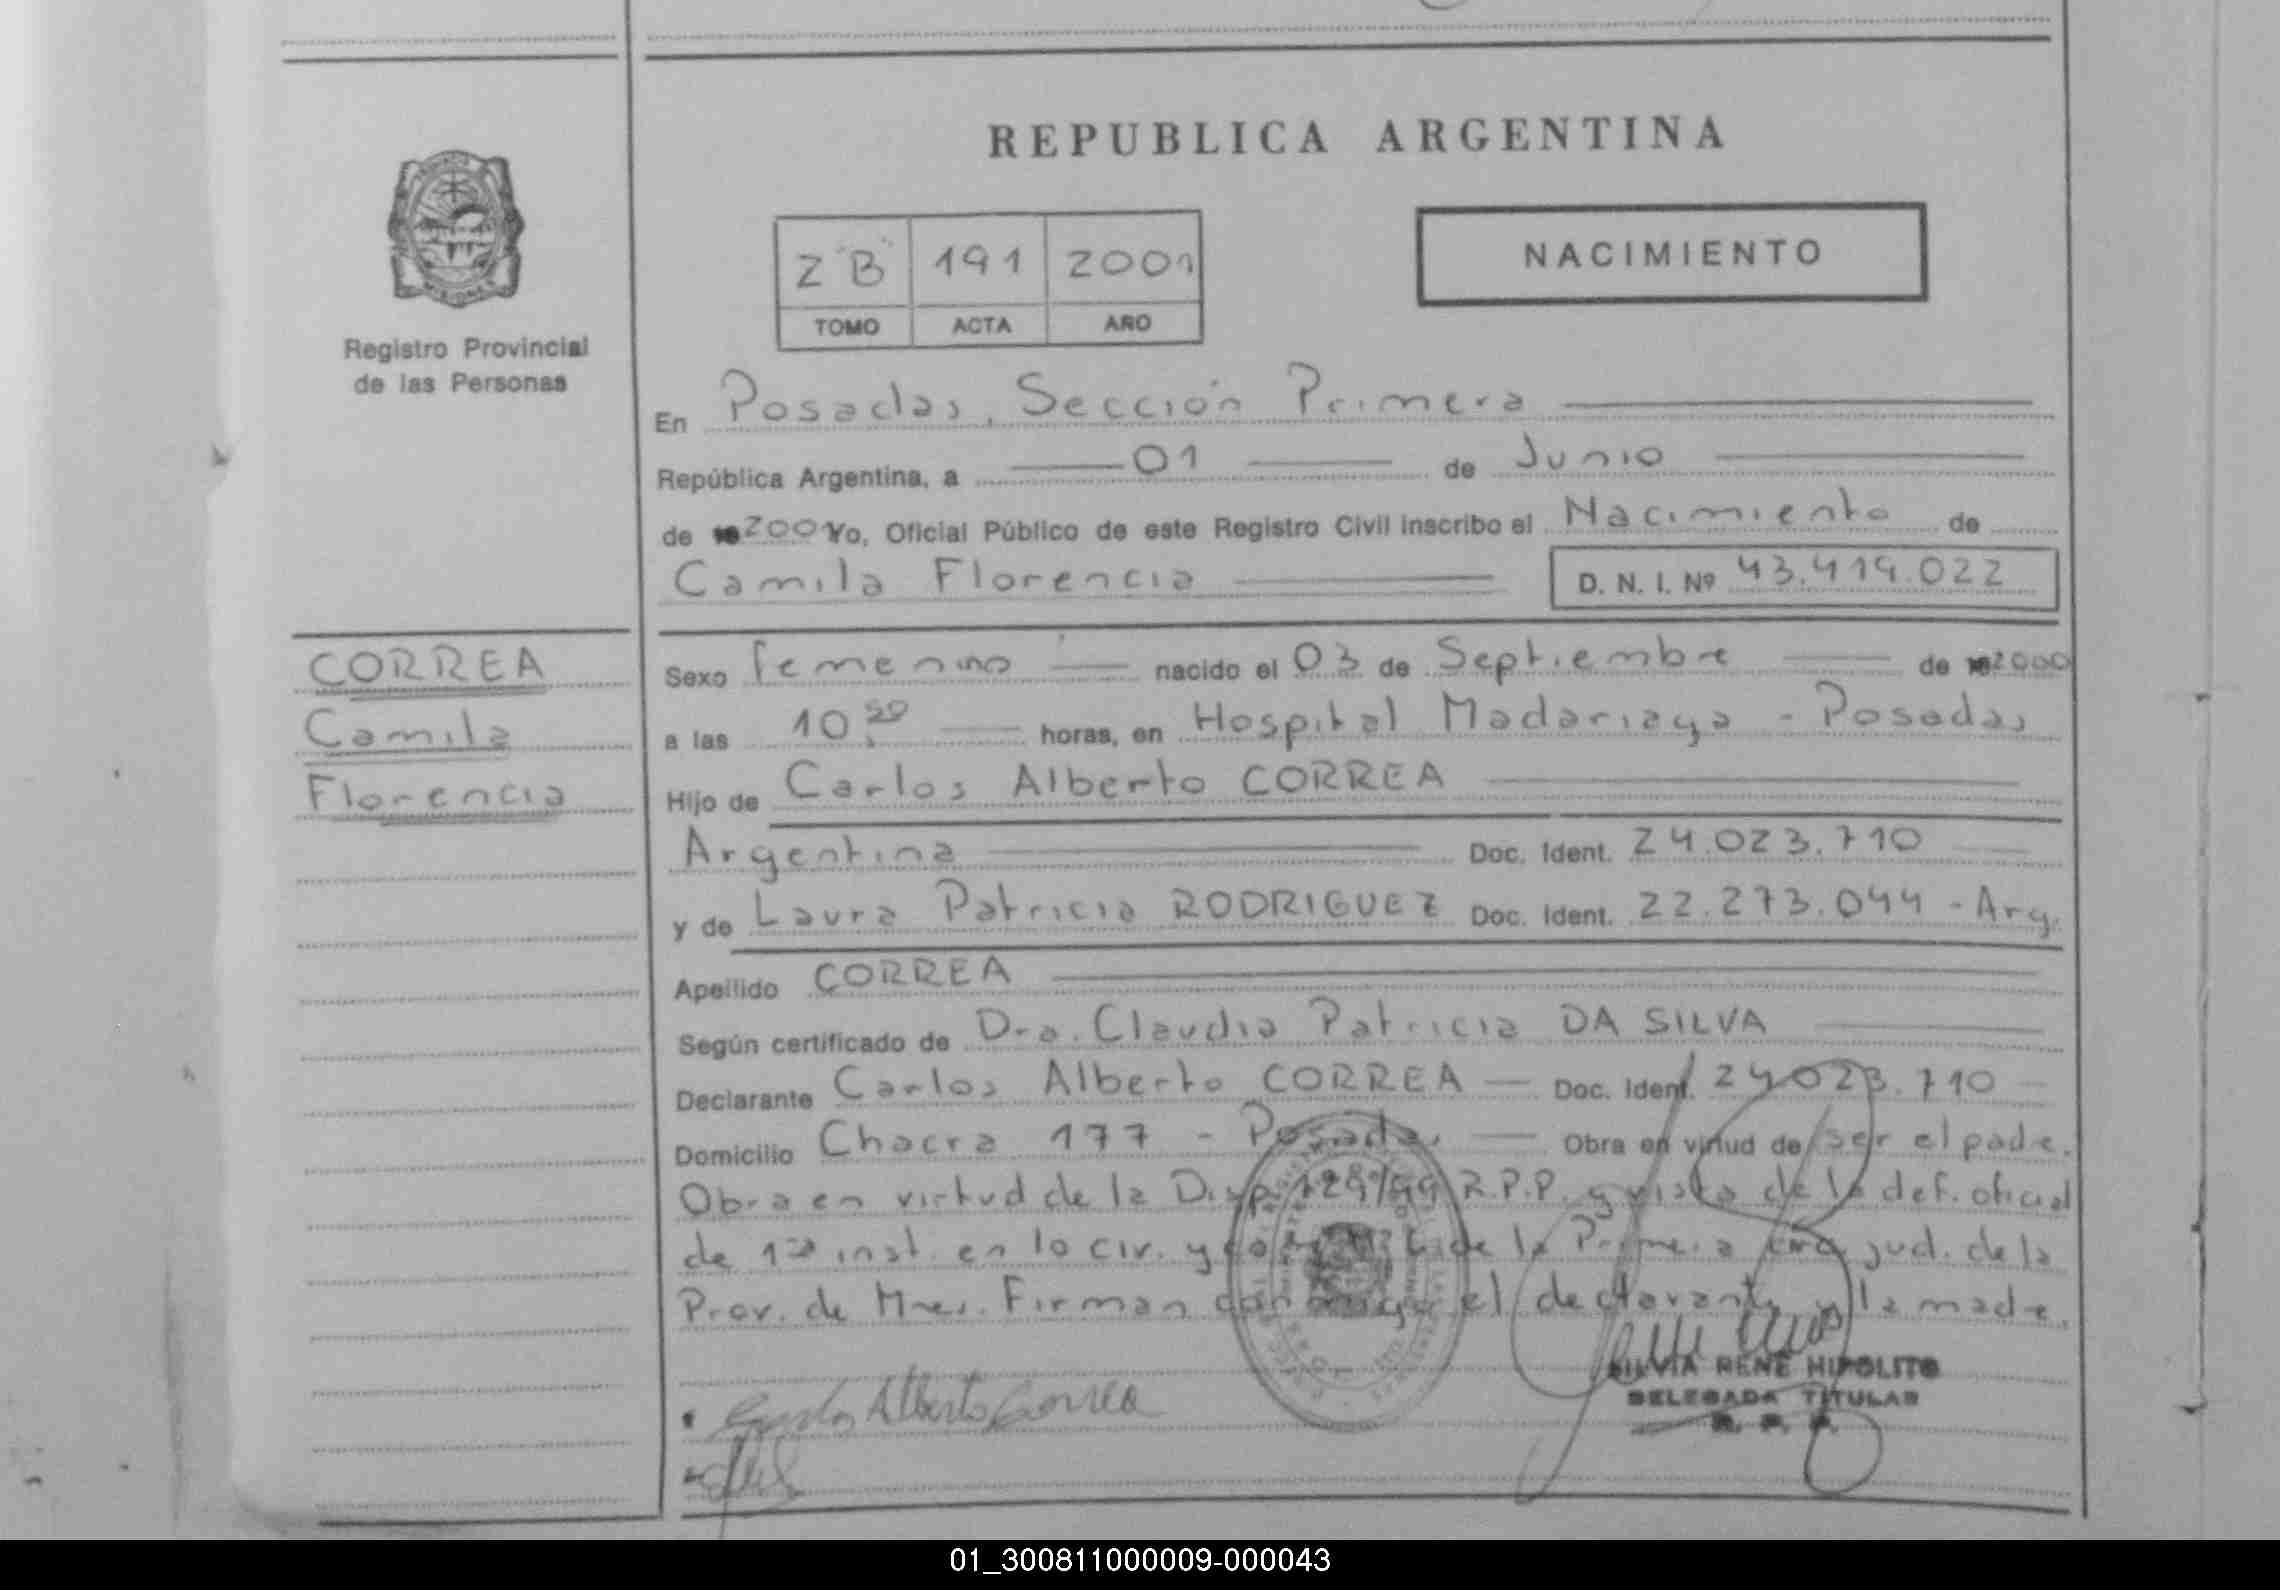 REPUBLICA ARGENTINA
NACIMIENTO
2 "B" 191 2001
TOMO ACTA AÑO
MISIONES
Registro Provincial
de las Personas
En Posadas, Sección Primera
República Argentina, a 01 de Junio
de 2001 Yo, Oficial Público de este Registro Civil inscribo el Nacimiento de
Camila Florencia D. N. I. Nº 43.419.022
CORREA
Camila
Florencia
Sexo femenino nacido el 03 de Septiembre de 2000
a las 10 horas, en Hospital Madariaga - Posadas
Hijo de Carlos Alberto CORREA
Argentina Doc. Ident. 24.023.710
y de Laura Patricia RODRIGUEZ Doc. Ident. 22.273.044 - Arg.
Apellido CORREA
Según certificado de Dra. Claudia Patricia DA SILVA
Declarante Carlos Alberto CORREA Doc. Ident. 24.023.710
Domicilio Chacra 177 - Posadas Obra en virtud de ser el padre.
Obra en virtud de la Disp. 129/99 R.P.P. y vista de la def. oficial
de 1ra inst. en lo civ. y de la Primera circ. jud. de la
Prov. de Mnes. Firman conmigo el declarante y la madre.
Carlos Alberto Correa
SILVIA RENE HIPOLITO
DELEGADA TITULAR
R. P. P.
01_300811000009-000043